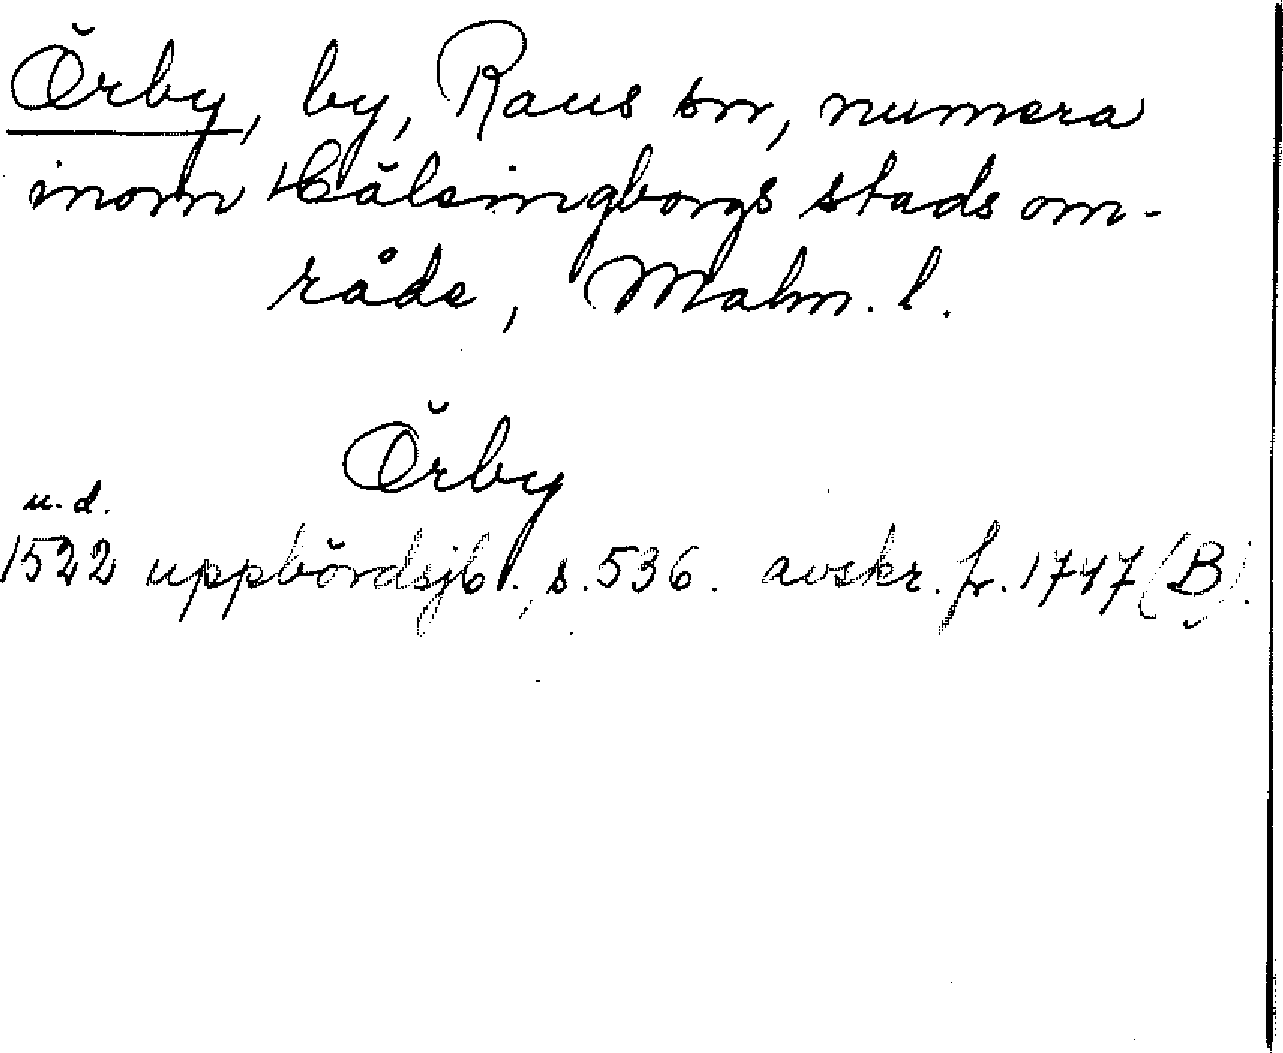 Örby, by, Raus sn, numera
inom Hälsingborgs stads om-
råde, Malm. l.
Örby
u. d.
1522 uppbördsjb., s. 536. avskr. fr. 1747 (B).